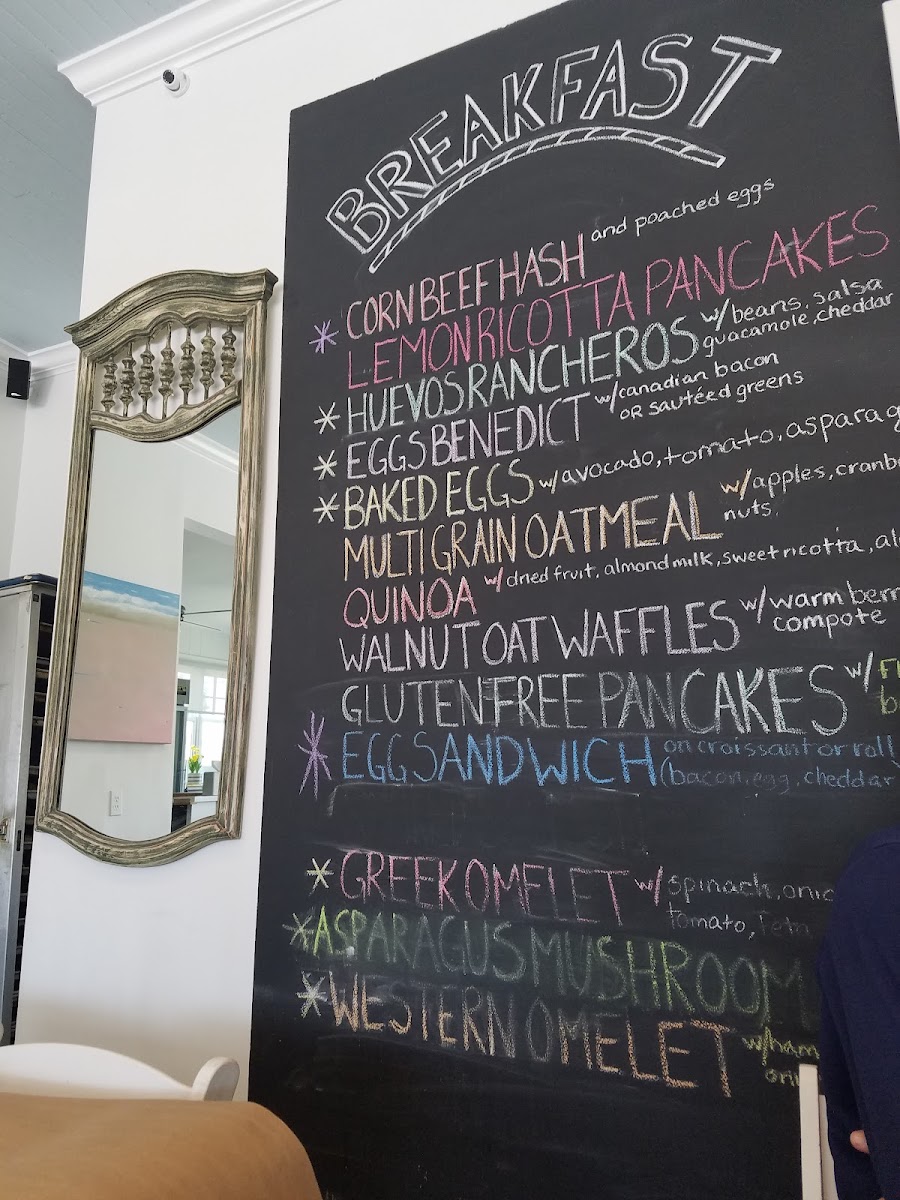 BREAKFAST
* CORN BEEF HASH and poached eggs
LEMON RICOTTA PANCAKES
* HUEVOS RANCHEROS w/beans, salsa
guacamole, cheddar
* EGGS BENEDICT w/canadian bacon
OR sautéed greens
* BAKED EGGS w/avocado, tomato,
MULTIGRAIN OATMEAL w/apples,
nuts.
QUINOA w/dried fruit, almond milk, sweet ricotta,
WALNUT OAT WAFFLES w/warm
compote
GLUTEN FREE PANCAKES w/
* EGG SANDWICH on croissant or roll
(bacon, egg, cheddar
* GREEK OMELET w/spinach,
tomato,
* ASPARAGUS MUSHROOM
* WESTERN OMELET w/ham